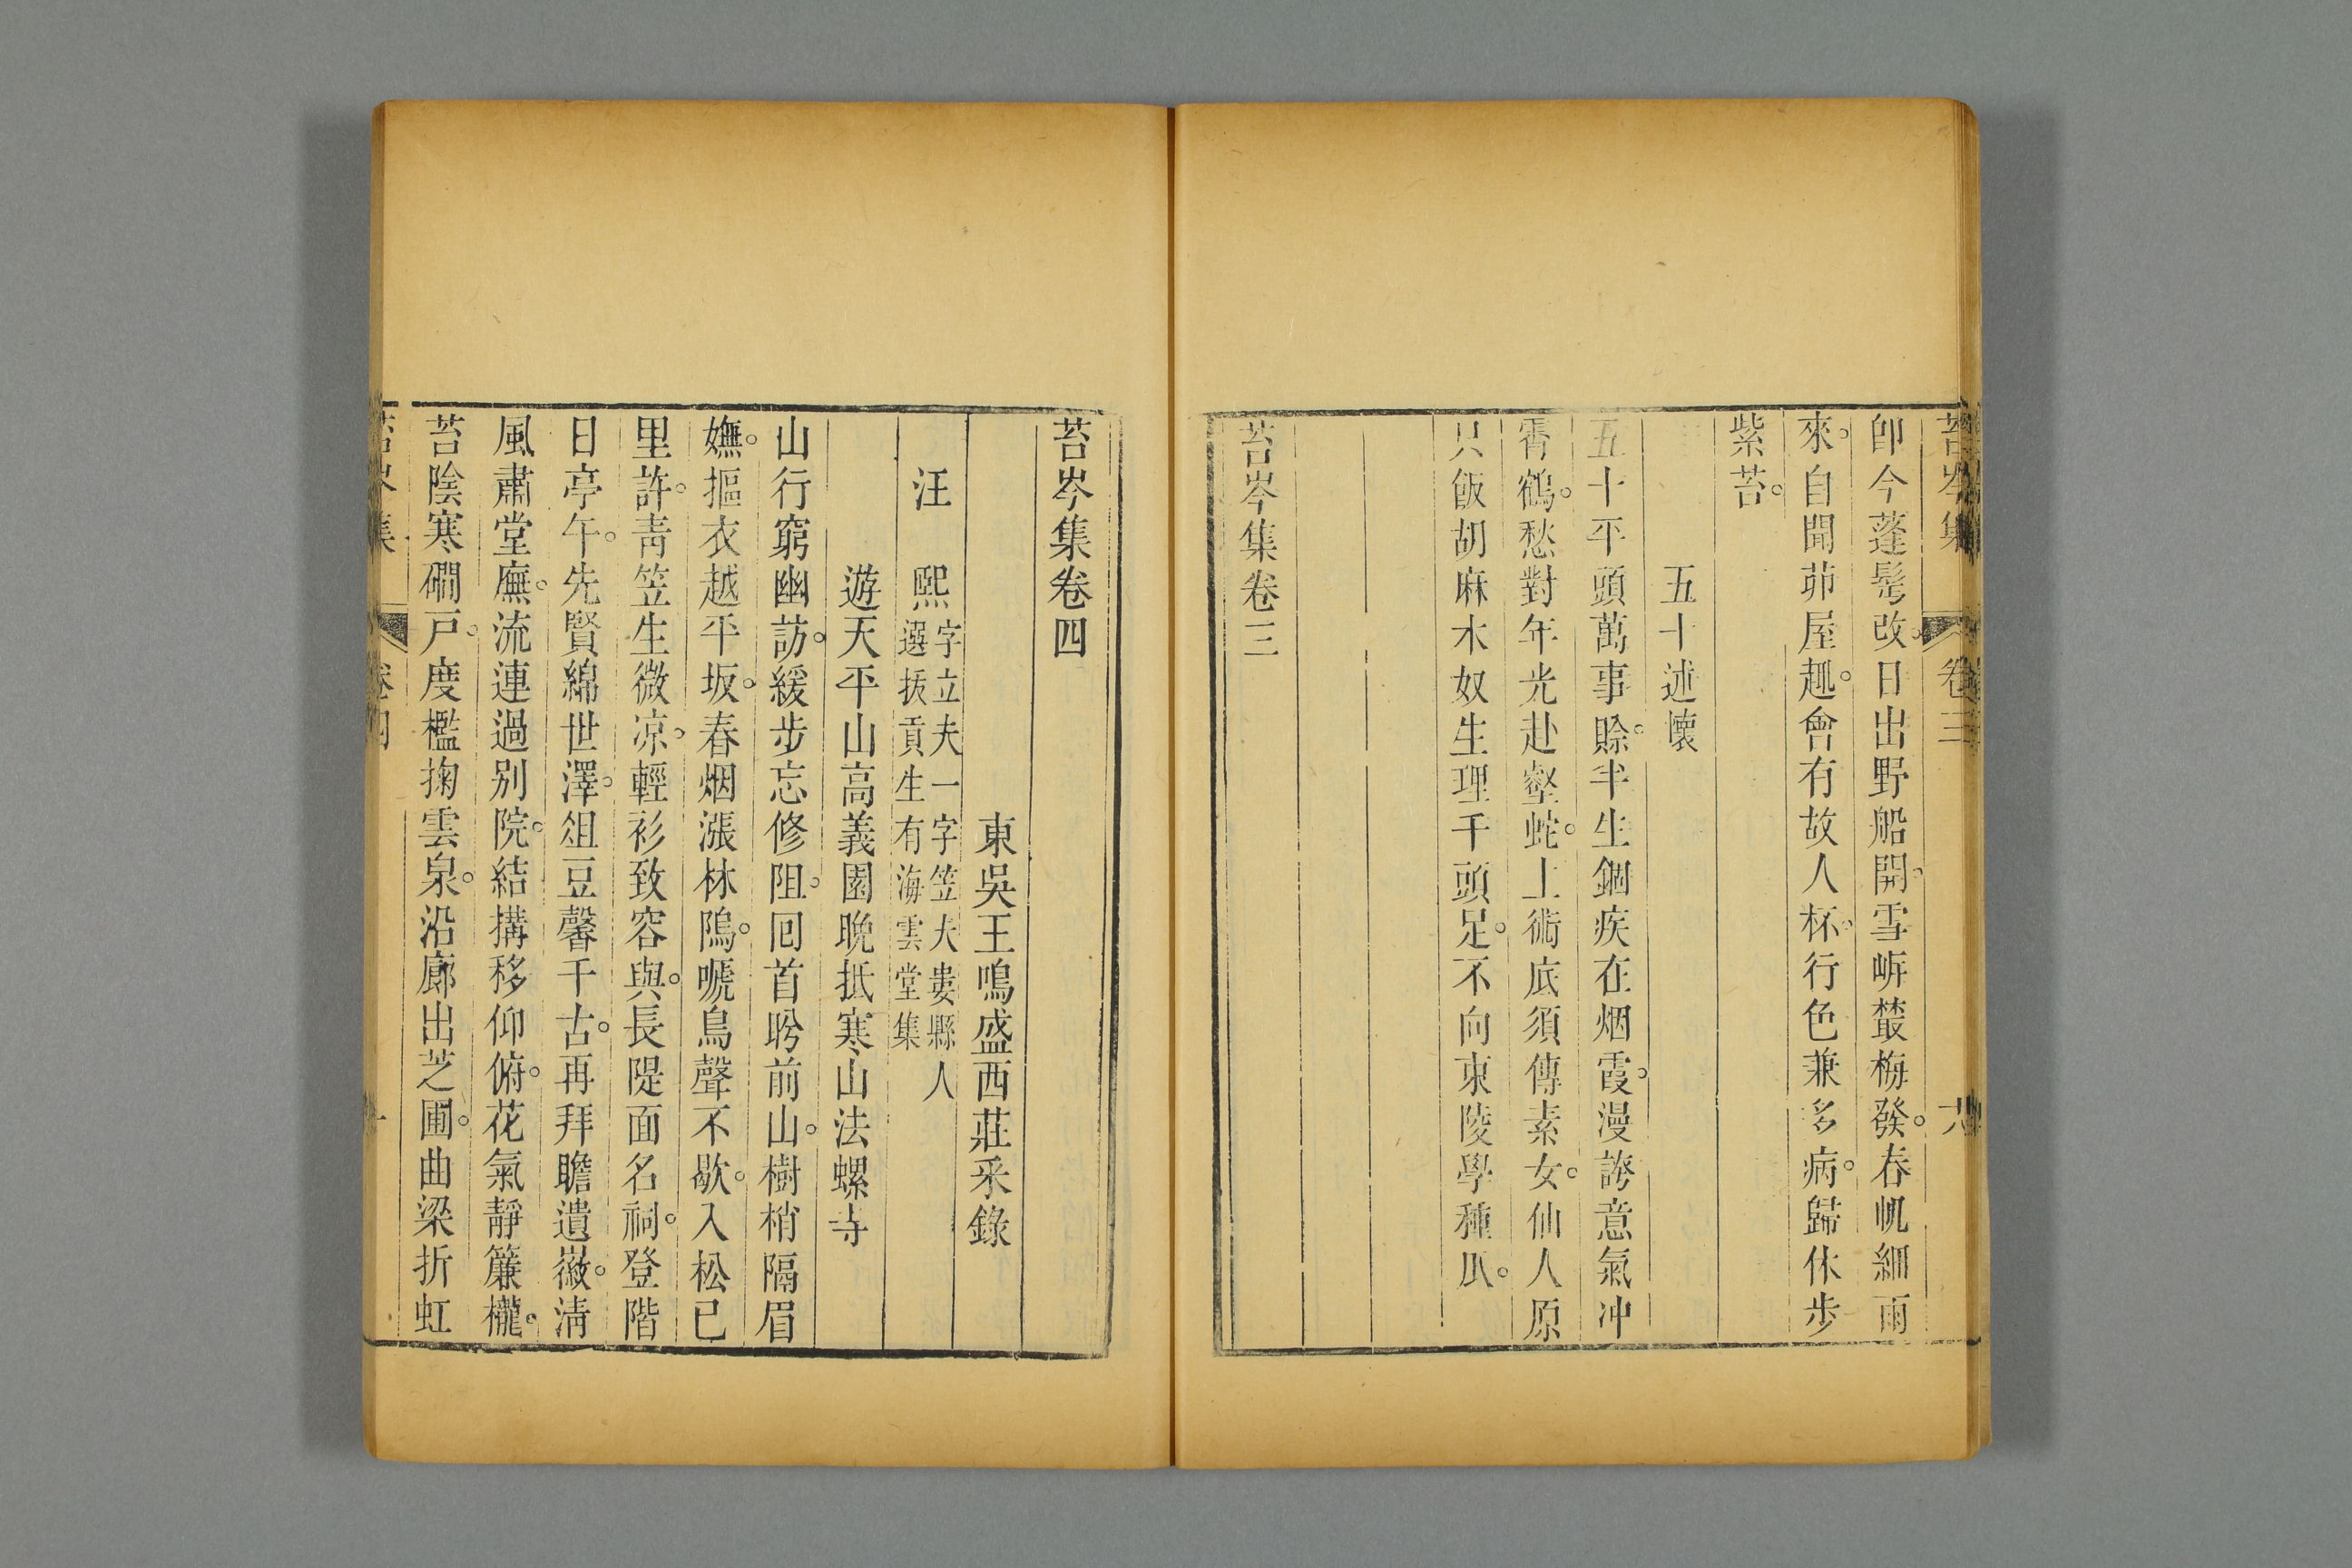 苔岑集 卷三
卽今蓬髩改。日出野船開。雪㟁藂梅發。春帆細雨
來。自聞茆屋趣。會有故人杯。行色兼多病。歸休步
紫苔。
五十述懷
五十平頭萬事賒。半生錮疾在烟霞。漫誇意氣冲
霄鶴。愁對年光赴壑蛇。上術底須傳素女。仙人原
只飯胡麻。木奴生理千頭足。不向東陵學種瓜。
苔岑集卷三
苔岑集卷四
東吳王鳴盛西莊采錄
汪熙 字立夫一字笠夫婁縣人
選拔貢生有海雲堂集
遊天平山高義園晚抵寒山法螺寺
山行窮幽訪。緩步忘修阻。囘首盻前山。樹梢隔眉
嫵。摳衣越平坂。春烟漲林隖。嗁鳥聲不歇。入松已
里許。靑笠生微凉。輕衫致容與。長隄面名祠。登階
日亭午。先賢綿世澤。俎豆馨千古。再拜瞻遺徽。淸
風肅堂廡。流連過别院。結搆移仰俯。花氣靜簾櫳。
苔陰寒磵戸。度檻掬雲泉。沿廊出芝圃。曲梁折虹
苔岑集 卷四 一